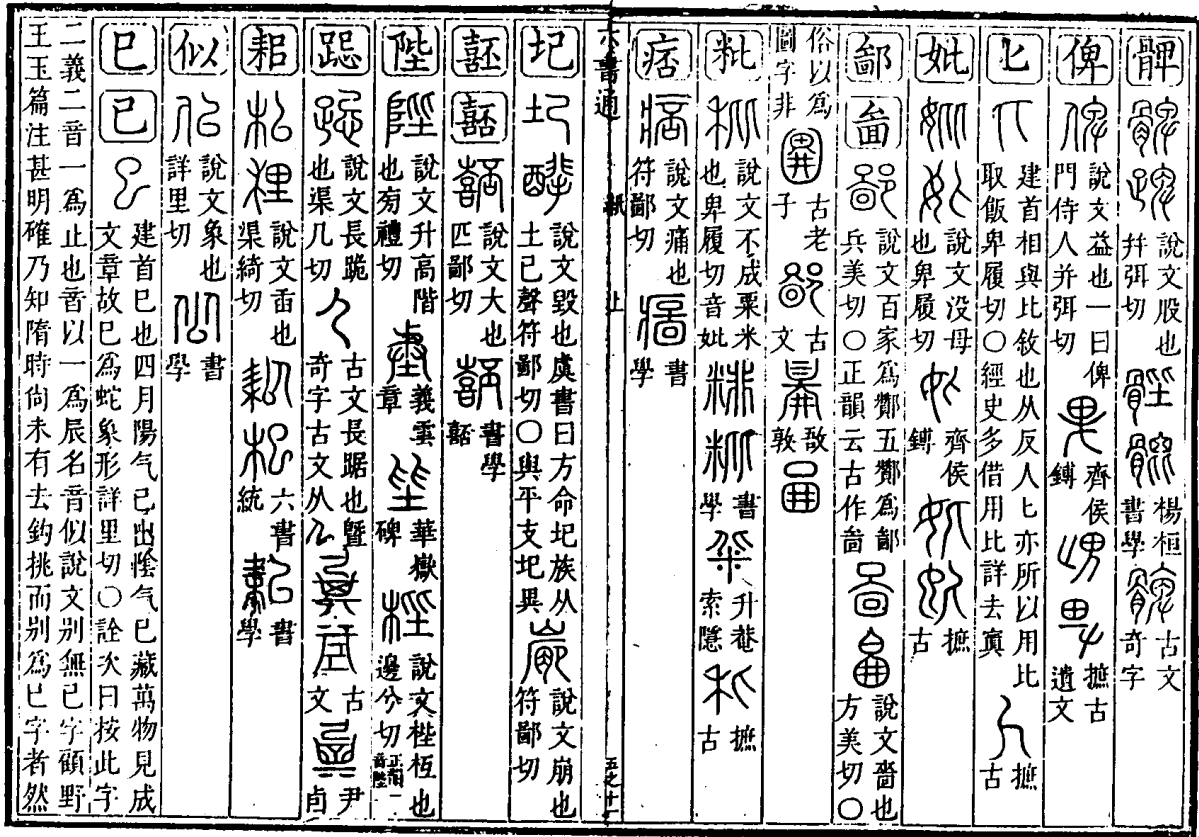 髀 說文股也幷弭切 楊桓書學 古文奇字
俾 說文益也一曰俾門侍人并弭切 齊侯鎛 摭古遺文
匕 建首相與比敘也从反人匕亦所以用比取飯卑履切〇經史多借用比詳去寘 摭古
妣 說文没母也卑履切 齊侯鎛 摭古
鄙 啚 說文百家爲酇五酇爲鄙兵美切〇正韻云古作啚 說文嗇也方美切〇
俗以爲圖字非 古老子 古文 敔敦
粃 說文不成粟米也卑履切音妣 書學 升菴索隱 摭古
痞 說文痛也符鄙切 書學
六書通 紙 上 五之十一
圮 說文毀也虞書曰方命圮族从土己聲符鄙切〇與平支圯異 說文崩也符鄙切
嚭 說文大也匹鄙切 書學
陛 說文升高階也㫄禮切 義雲章 華嶽碑 說文梐枑也邊兮切
跽 說文長跪也渠几切 古文長踞也曁奇字古文从 古文 尹卣
耜 說文臿也渠綺切 六書統 書學
似 說文象也詳里切 書學
巳 巳 建首巳也四月陽气巳出陰气巳藏萬物見成文章故巳爲蛇象形詳里切〇詮次曰按此字
二義二音一爲止也音以一爲辰名音似說文別無已字顧野王玉篇注甚明確乃知隋時尙未有去鈎挑而別爲已字者然